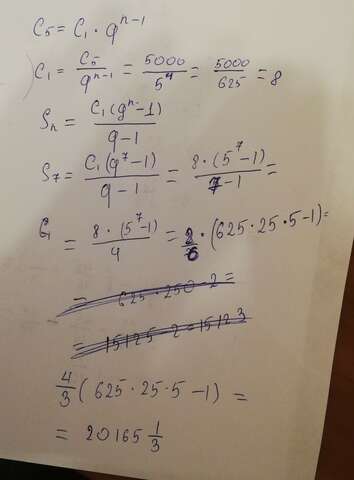 C5 = C1 · q^n-1
C1 = C5/q^n-1 = 5000/5^4 = 5000/625 = 8
Sn = C1(q^n-1)/q-1
S7 = C1(q^7-1)/q-1 = 8·(5^7-1)/7-1 =
= 8·(5^7-1)/4 = 8/6 · (625·25·5-1) =
= 625·250-2 =
= 15125-2=15123
4/3 (625·25·5-1) =
= 20165 1/3